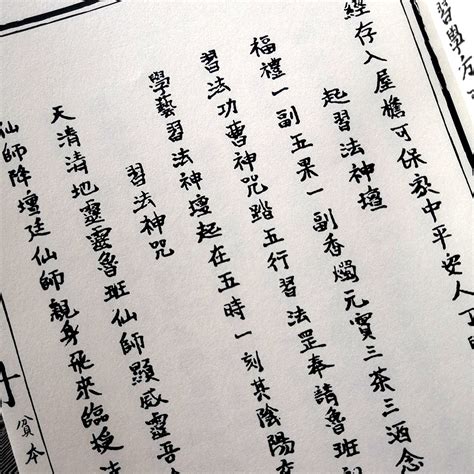 習學方
經存入屋檐可保家中平安人丁
起習法神壇
福禮一副五果一副香燭元寶三茶三酒念
習法功曹神咒踏五行習法罡奉請魯班
學藝習法神壇起在五時一刻其陰陽在
習法神咒
天清清地靈靈魯班仙師顯威靈吾
仙師降壇廷仙師親身飛來臨授法
本